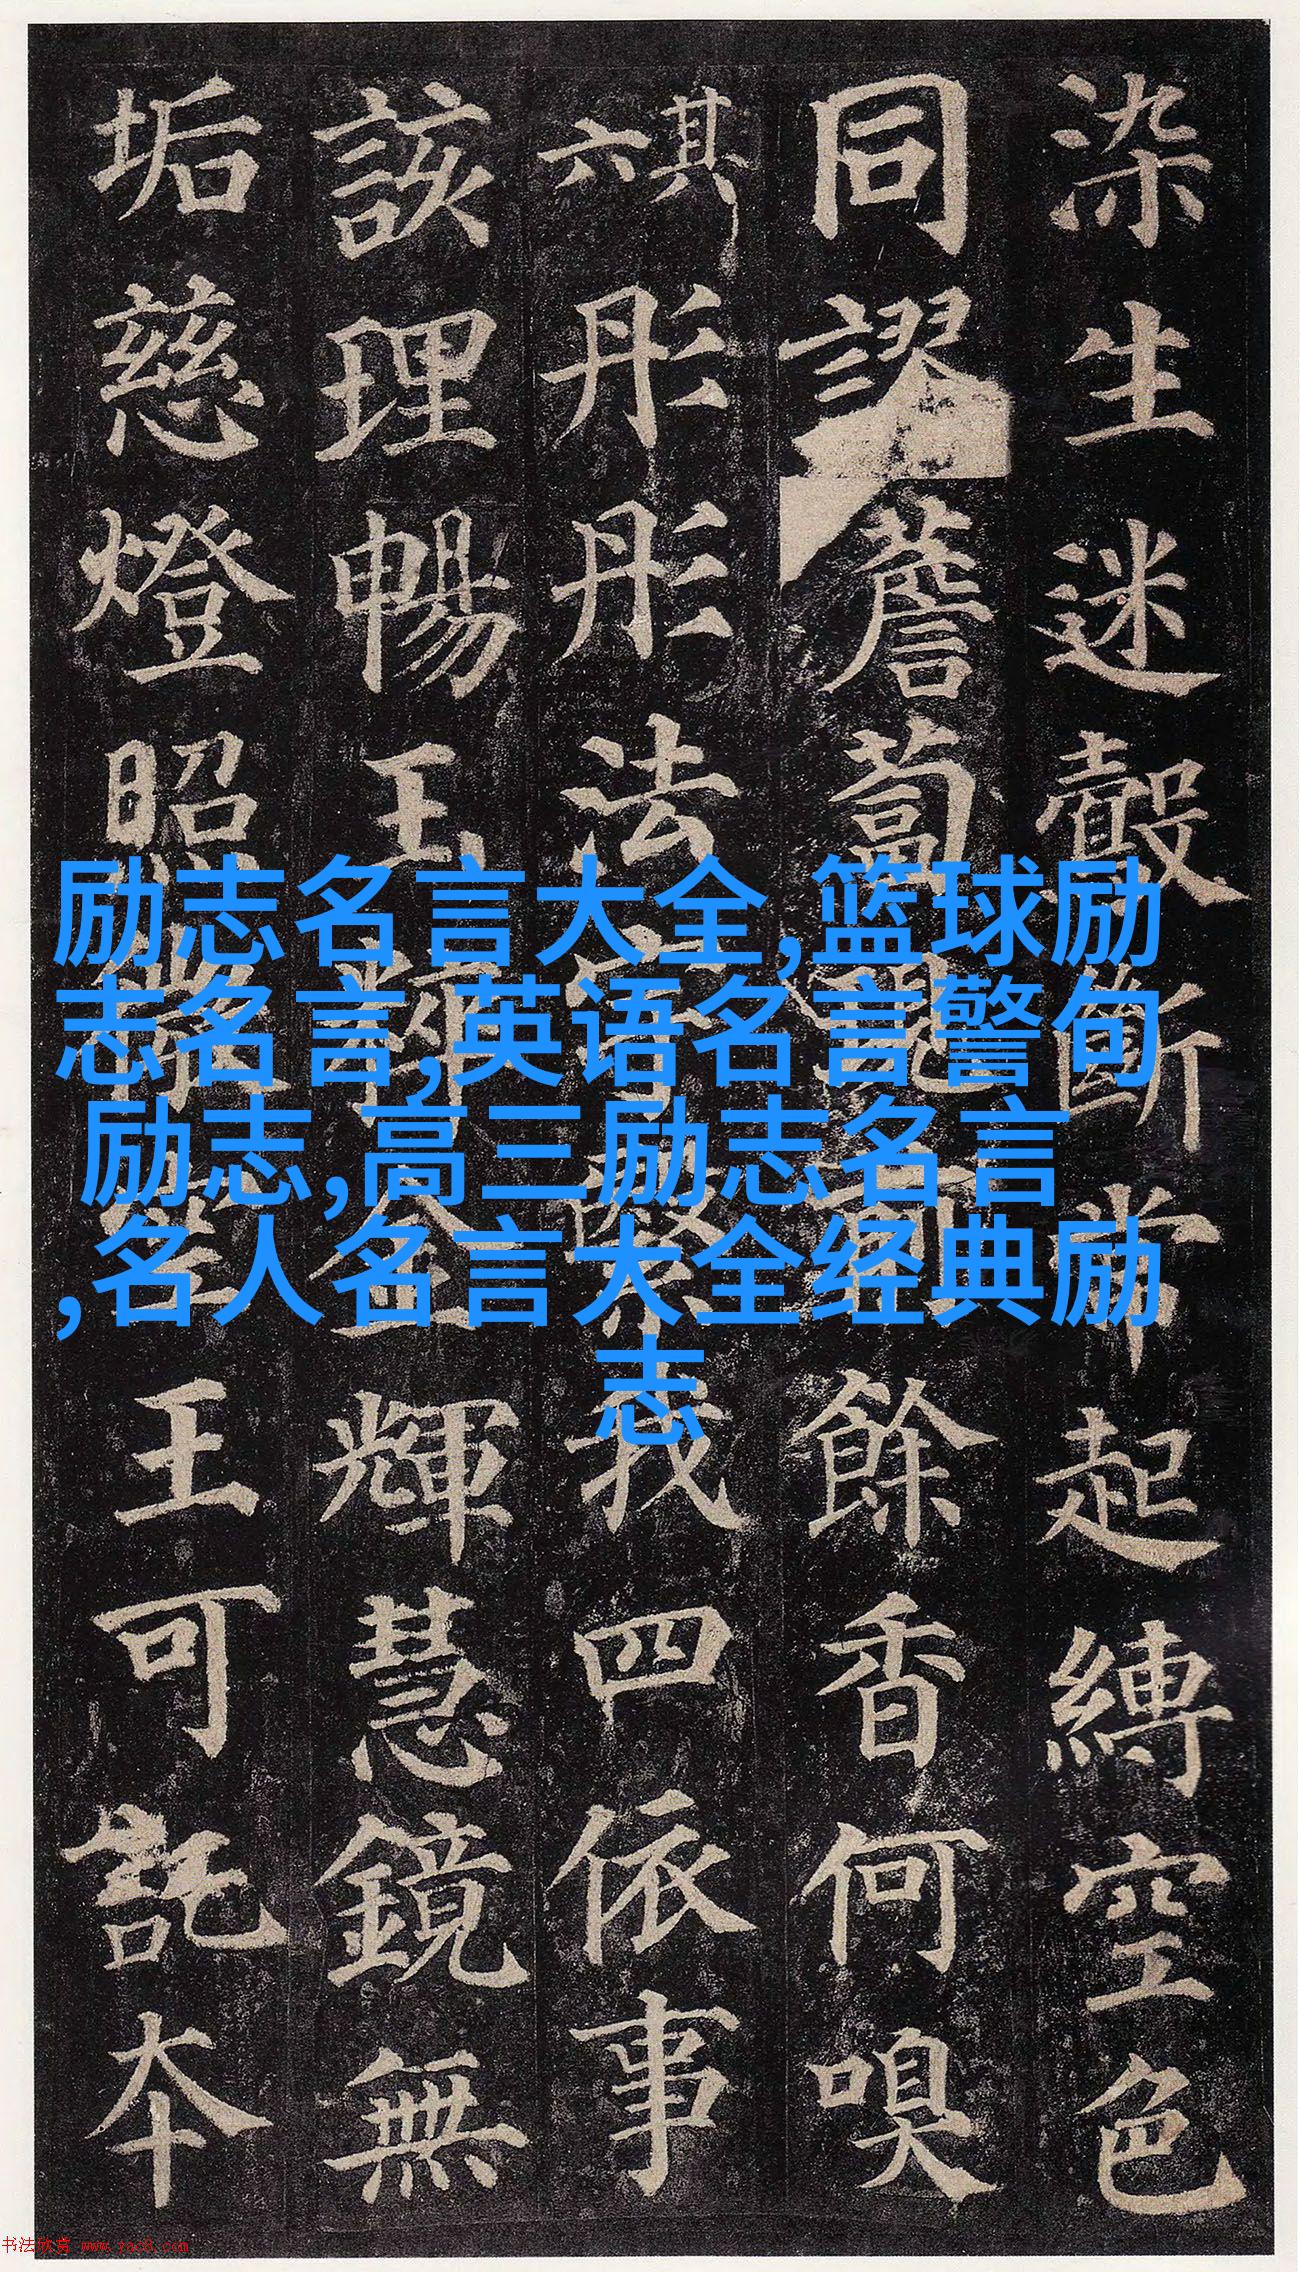 染生迷瞉斷常起縛空色
同謬薝蔔餘香何嗅
其六彤彤法我四依事
該理暢玉粹金輝慧鏡無
垢慈燈照王可託本
励志名言大全,篮球励
志名言,英语名言警句
励志,高三励志名言
,名人名言大全经典励
志
书法欣赏 www.yac8.com